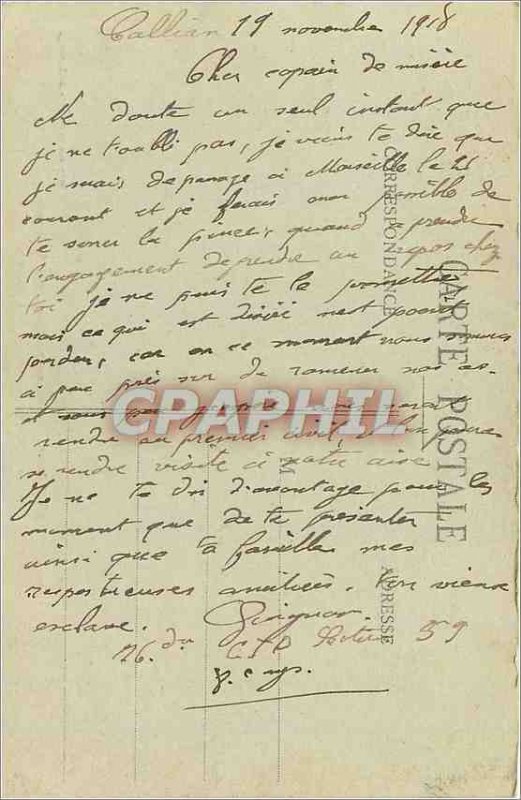 Callian 19 novembre 1918
Cher copain de misère
Ne doute un seul instant que
je ne t'oubli pas, je viens te dire que
je suis de passage à Marseille le 21
courant et je ferais mon possible de
te serrer la pince, quand à prendre
l'engagement de prendre un repos chez
toi je ne puis te le promettre
mais ce qui est différé n'est point
perdu, car en ce moment nous
à peu près sur de ramener nos os
et sous peu
rendre au premier civil, et on pourra
se rendre visite à notre aise
Je ne te di d'avantage pour le
moment que de te présenter
ainsi que ta famille mes
respectueuses amitiés. Ton vieux
esclave.
76. du Secteur 59
CARTE POSTALE
CORRESPONDANCE
ADRESSE
M
CPARAPHIL